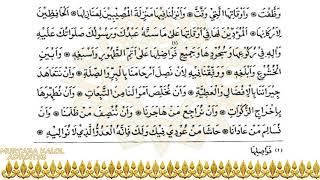 وَظَّفْتَ وَأَوْقَاتِهَا الَّتِي وَقَّتَّ وَأَنْزِلْنَا فِيهَا مَنْزِلَةَ الْمُصِيبِينَ لِمَنَازِلِهَا الْحَافِظِينَ
لِأَرْكَانِهَا الْمُؤَدِّينَ لَهَا فِي أَوْقَاتِهَا عَلَى مَا سَنَّهُ عَبْدُكَ وَرَسُولُكَ صَلَوَاتُكَ عَلَيْهِ
وَآلِهِ فِي رُكُوعِهَا وَسُجُودِهَا وَجَمِيعِ فَوَاضِلِهَا (١) عَلَى أَتَمِّ الطَّهُورِ وَأَسْبَغِهِ وَأَبْيَنِ
الْخُشُوعِ وَأَبْلَغِهِ وَوَفِّقْنَا فِيهِ لِأَنْ نَصِلَ أَرْحَامَنَا بِالْبِرِّ وَالصِّلَةِ وَأَنْ نَتَعَاهَدَ
جِيرَانَنَا بِالْإِفْضَالِ وَالْعَطِيَّةِ وَأَنْ نُخَلِّصَ أَمْوَالَنَا مِنَ التَّبِعَاتِ وَأَنْ نُطَهِّرَهَا
بِإِخْرَاجِ الزَّكَوَاتِ وَأَنْ نُرَاجِعَ مَنْ هَاجَرَنَا وَأَنْ نُنْصِفَ مَنْ ظَلَمَنَا وَأَنْ
نُسَالِمَ مَنْ عَادَانَا حَاشَا مَنْ عُودِيَ فِيكَ وَلَكَ فَإِنَّهُ الْعَدُوُّ الَّذِي لَا نُوَالِيهِ
(١) فَوَاضِلِهَا
MURTAZA MALOL